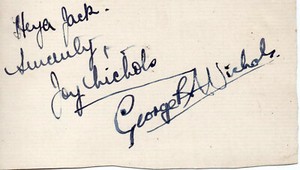 Heya Jack.
Sincerely,
Joy Nichols
George A Nichols.